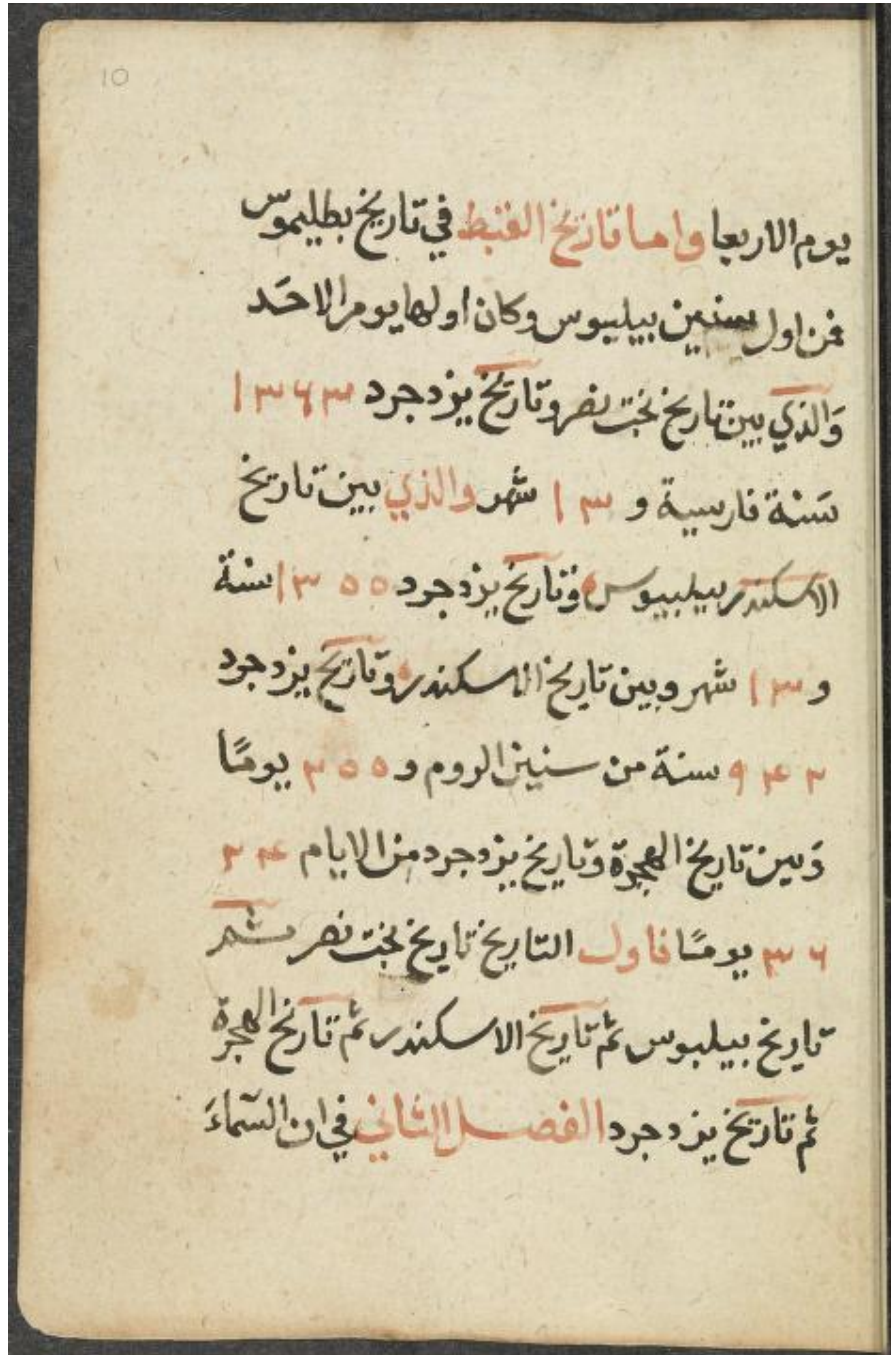 10
يوم الاربعا واما تاريخ القبط في تاريخ بطليموس
فمن اول سنين بيليبوس وكان اولها يوم الاحد
والذي بين تاريخ بخت نصر وتاريخ يزدجرد ١٣٦٣
سنة فارسية و ١٣ شهر والذي بين تاريخ
الاسكندر بيلبيوس وتاريخ يزدجرد ١٣٥٥ سنة
و ١٣ شهر وبين تاريخ الاسكندر وتاريخ يزدجرد
٩٤٢ سنة من سنين الروم و ٢٥٥ يومًا
وَبين تاريخ الهجرة وتاريخ يزدجرد من الايام ٢٤
٣٦ يومًا فاول التاريخ تاريخ بخت نصر ثم
تاريخ بيلبوس ثم تاريخ الاسكندر ثم تاريخ الهجرة
ثم تاريخ يزدجرد الفصل الثاني في ان السمآءَ